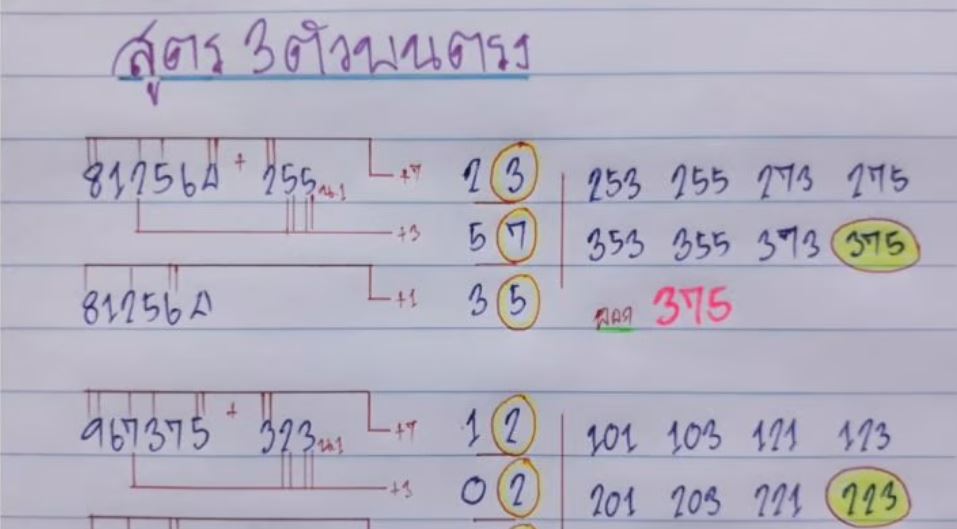 สูตร 3ตัวบนตรง
812564 + 255 น.1 +7 2 3 253 255 273 275
+3 5 7 353 355 373 375
812564 +1 3 5 ออก 375
967375 + 323 น.1 +7 1 2 101 103 121 123
+3 0 2 201 203 221 223